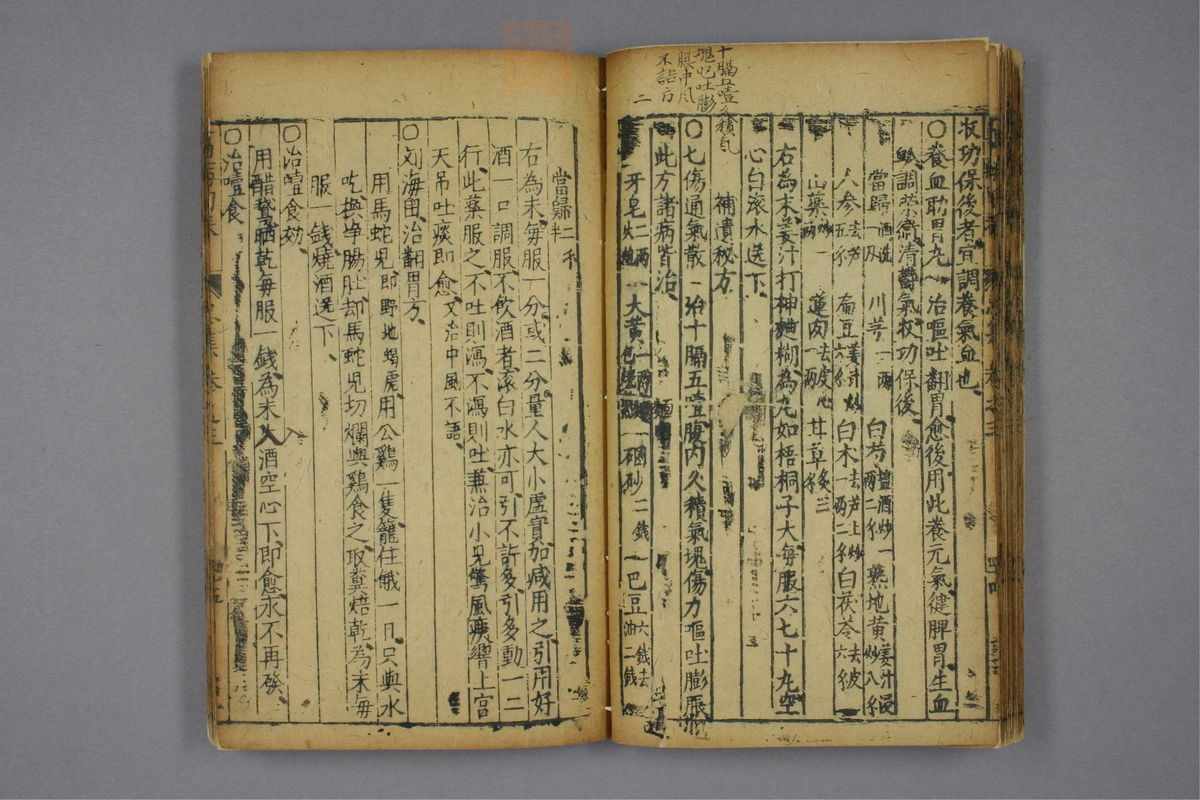 十膈五噎久積氣
塊呕吐膨
脹中风
不語方
二
収功保後者宜調養氣血也
〇養血助胃丸 治嘔吐翻胃愈後用此養元氣健脾胃生血
調榮衛清鬱氣収功保後
當歸酒洗一兩 川芎一兩 白芍鹽酒炒一兩二錢 熟地黄姜汁浸炒八錢
人参去芦五錢 扁豆姜汁炒六錢 白术去芦土炒一兩二錢 白茯苓去皮六錢
山藥炒一兩 蓮肉去皮心一兩 甘草炙三錢
右為末姜汁打神麯糊為丸如梧桐子大每服六七十丸空
心白滚水送下
補遺秘方
〇七傷通氣散 治十膈五噎腹内久積氣塊傷力嘔吐膨脹
此方諸病皆治
牙皂二兩火炮 大黄二兩麵包煨 硇砂二錢 巴豆六錢去油二錢
當歸二錢半
右為末每服一分或二分量人大小虛實加减用之引用好
酒一口調服不飲酒者滚白水亦可引不許多引多動一二
行此藥服之不吐則瀉不瀉則吐兼治小兒驚風痰響上宫
天吊吐痰即愈又治中風不語
〇文海留治翻胃方
用馬蛇兒即野地蝎虎用公鷄一隻籠住餓一日只與水
吃换净腸肚却馬蛇兒切爛與鷄食之取糞焙乾為末每
服一錢燒酒送下
〇治噎食劾
用醋蟄晒乾每服一錢為末入酒空心下即愈永不再發
〇治噎食